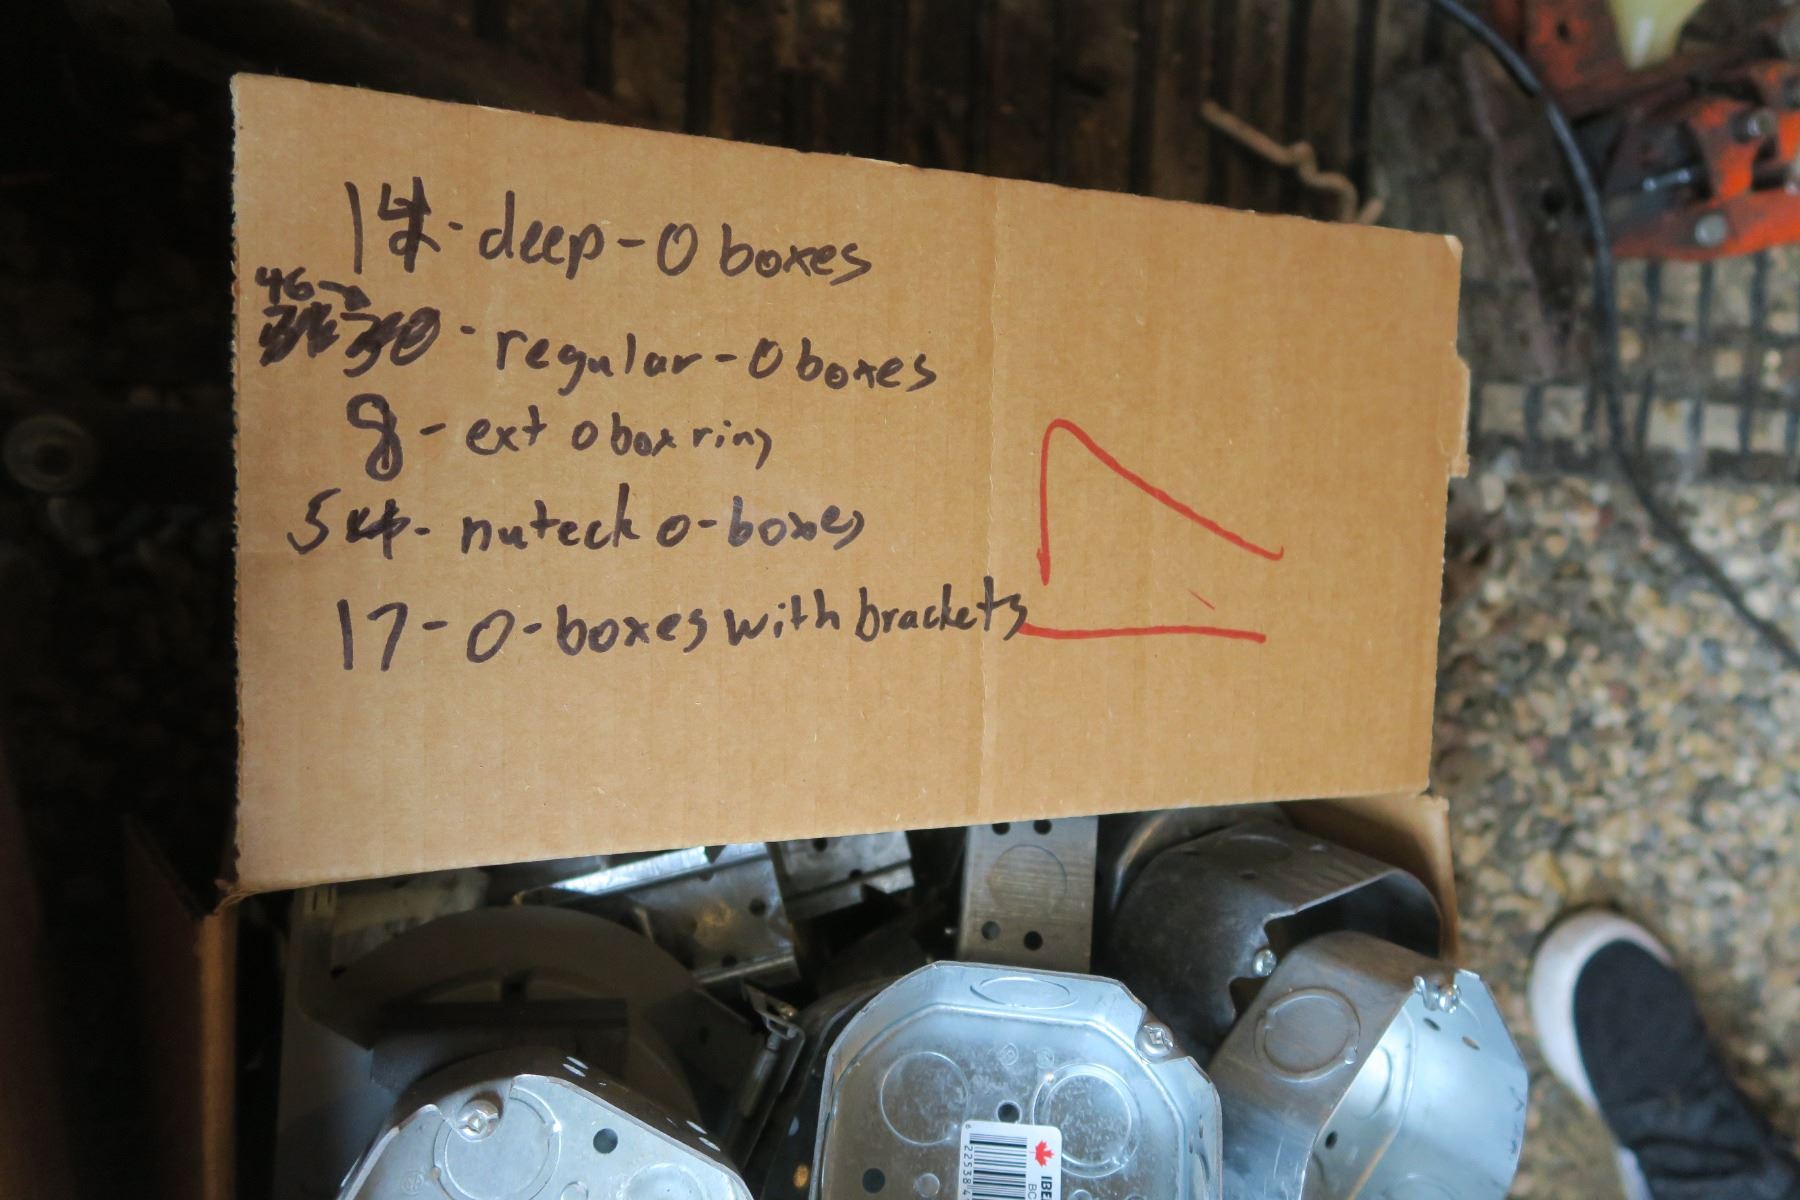 14 - deep - O boxes
46
30 - regular - O boxes
8 - ext o box ring
5 - nuteck o-boxes
17 - O-boxes with brackets